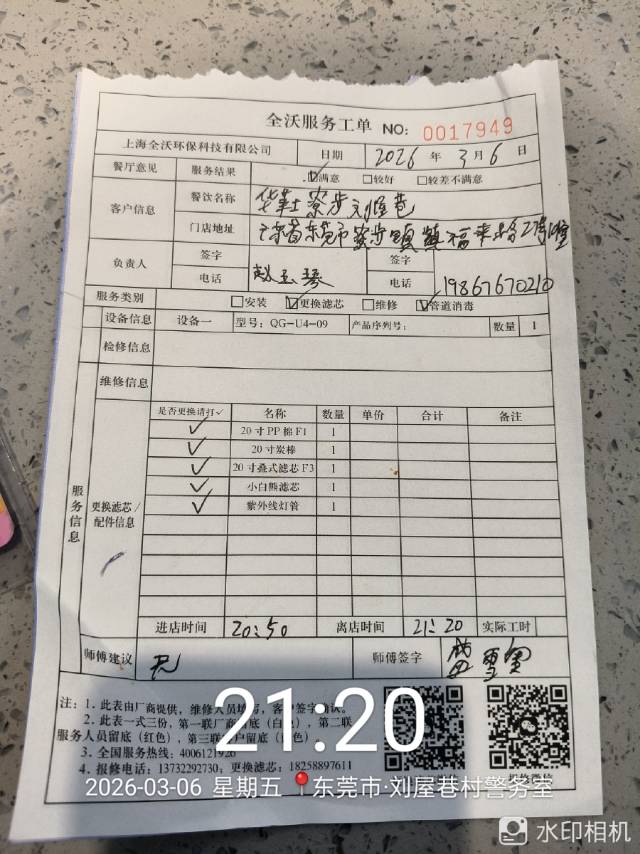 全沃服务工单 NO: 0017949
上海全沃环保科技有限公司 日期 2026 年 3 月 6 日
餐厅意见 服务结果 ☑满意 □较好 □较差不满意
客户信息 餐饮名称 华莱士寮步刘屋巷
门店地址 广东省东莞市寮步镇
负责人 签字 赵玉琴 签字
电话 电话 19867670210
服务类别 □安装 ☑更换滤芯 □维修 ☑管道消毒
设备信息 设备一 型号: QG-U4-09 产品序列号: 数量 1
检修信息
维修信息
服务信息
更换滤芯/配件信息
是否更换请打✓ 名称 数量 单价 合计 备注
✓ 20寸PP棉F1 1
✓ 20寸炭棒 1
✓ 20寸叠式滤芯F3 1
✓ 小白熊滤芯 1
✓ 紫外线灯管 1
进店时间 20:50 离店时间 21:20 实际工时
师傅建议 无 师傅签字
注: 1. 此表由厂商提供, 维修人员填写, 客户签字确认。
2. 此表一式三份, 第一联厂商留底(白色), 第二联
服务人员留底(红色), 第三联客户留底(色)。
3. 全国服务热线: 4006121926
4. 报修电话: 13732292730, 更换滤芯: 18258897611
21:20
2026-03-06 星期五 东莞市·刘屋巷村警务室
水印相机